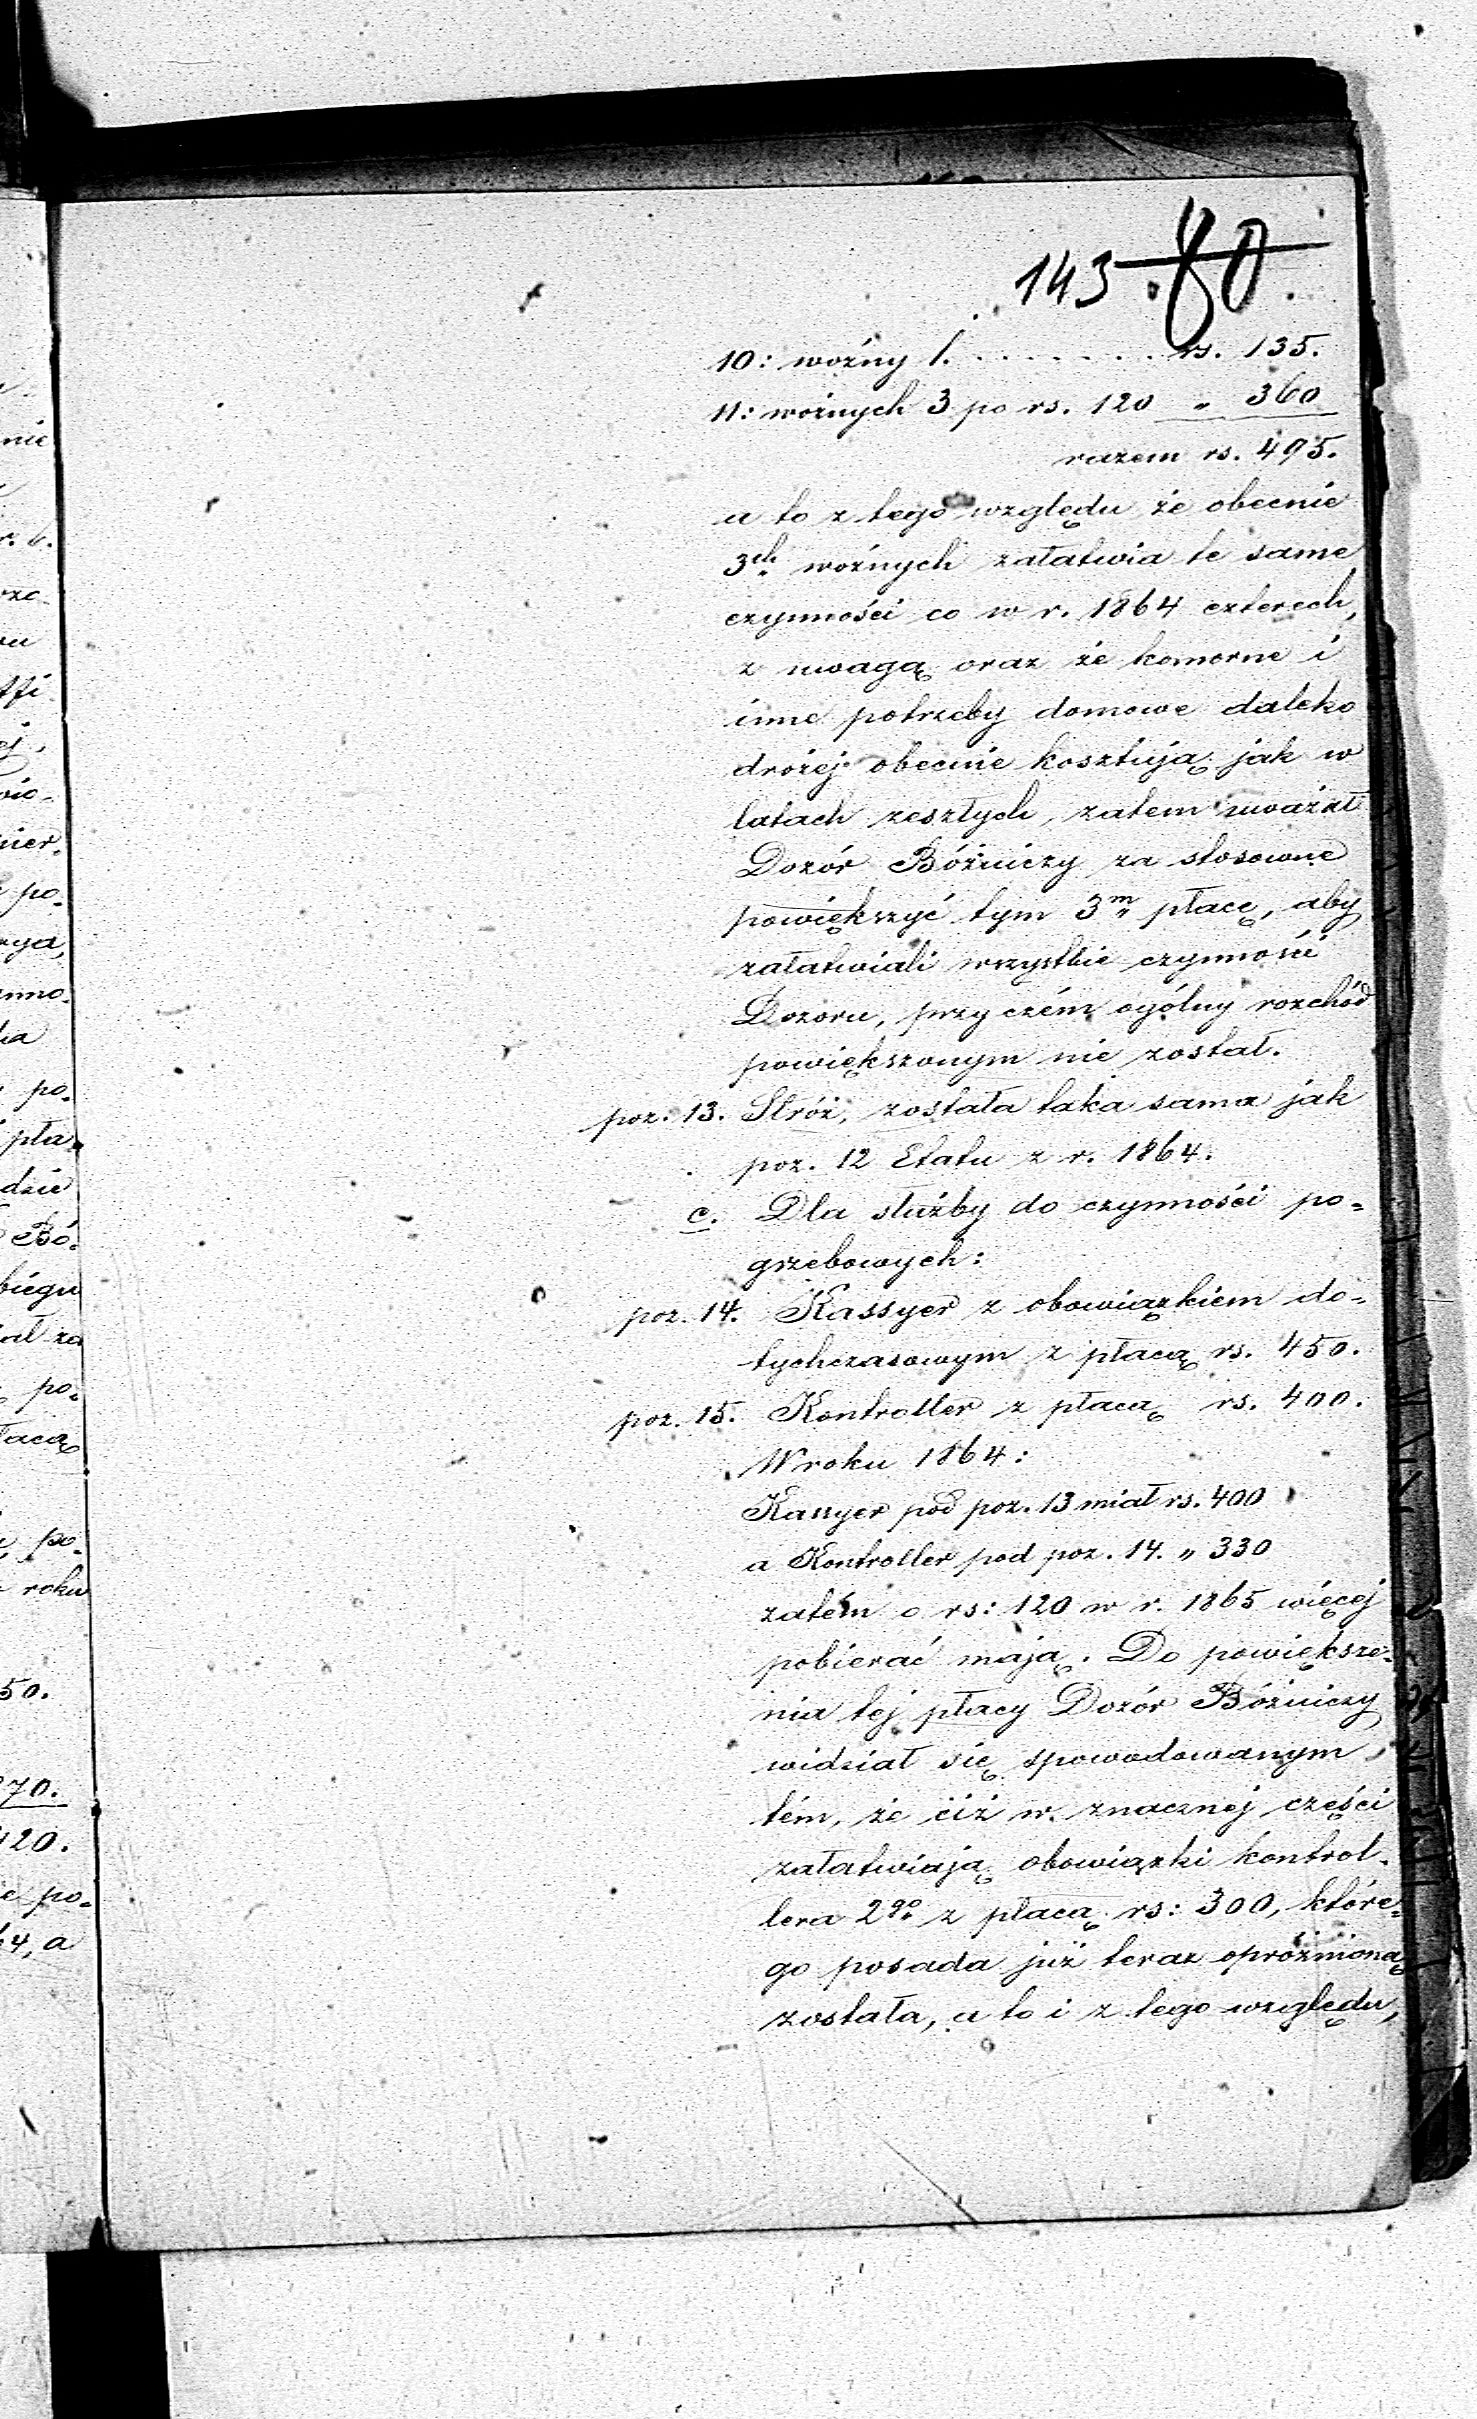 143 80.
10: woźny 1. . . . . . . . rs. 135.
11: woźnych 3 po rs. 120 „ 360
razem rs. 495.
a to z tego względu że obecnie
3ch woźnych załatwia te same
czynności co w r. 1864 czterech,
z uwagą oraz że komorne i
inne potrzeby domowe daleko
drożej obecnie kosztują jak w
latach zeszłych, zatem uważał
Dozór Bóźniczy za stosowne
powiększyć tym 3m płacę, aby
załatwiali wszystkie czynności
Dozoru, przy czém ogólny rozchód
powiększonym nie został.
poz. 13. Stróż, została taka sama jak
poz. 12 Etatu z r. 1864.
c. Dla służby do czynności po=
grzebowych:
poz. 14. Kassyer z obowiązkiem do=
tychczasowym z płacą rs. 450.
poz. 15. Kontroller z płacą rs. 400.
W roku 1864:
Kassyer pod poz. 13 miał rs. 400
a Kontroller pod poz. 14. „ 330
zatém o rs: 120 w r. 1865 więcej
pobierać mają. Do powiększe=
nia tej płacy Dozór Bóźniczy
widział się spowodowanym
tém, że ciż w znacznej części
załatwiają obowiązki kontrol=
lera 2go z płacą rs: 300, które=
go posada już teraz opróżnioną
została, a to i z tego względu,
nie
po=
po=
pła=
dzie
Bó=
biegu
po=
płacą
po=
roku
50.
270.
120.
po=
64, a